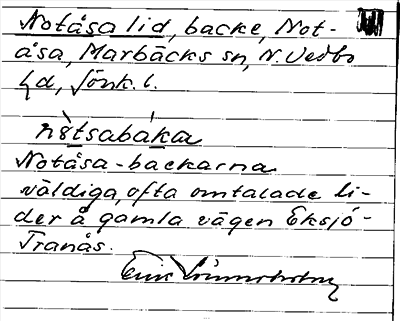 Notåsa lid, backe, Not-
åsa, Marbäcks sn, N. Vedbo
hd, Jönk. l.
nò̀tsabáka
Notåsa-backarna
väldiga, ofta omtalade li-
der å gamla vägen Eksjö-
Tranås.